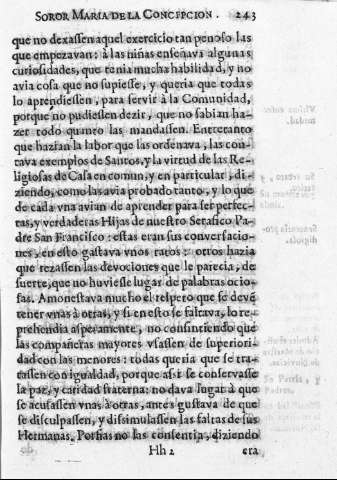 SOROR MARIA DE LA CONCEPCION. 243
que no dexassen aquel exercicio tan penoso las
que empezavan: à las niñas enseñava algunas
curiosidades, que tenia mucha habilidad, y no
avia cosa que no supiesse, y queria que todas
lo aprendiessen, para servir à la Comunidad,
porque no pudiessen dezir, que no sabian ha-
zer todo quanto las mandassen. Entretanto
que hazian la labor que las ordenava, las con-
tava exemplos de Santos, y la virtud de las Re-
ligiosas de Casa en comun, y en particular, di-
ziendo, como las avia probado tanto, y lo que
de cada vna avian de aprender para ser perfec-
tas, y verdaderas Hijas de nuestro Serafico Pa-
dre San Francisco: estas eran sus conversacio-
nes, en esto gastava vnos ratos: otros hazia
que rezassen las devociones que le parecia, de
suerte, que no huviesse lugar de palabras ocio-
sas. Amonestava mucho el respeto que se deve
tener vnas à otras, y si en esto se faltava, lo re-
prehendia asperamente, no consintiendo que
las compañeras mayores vsassen de superiori-
dad con las menores: todas queria que se tra-
tassen con igualdad, porque assi se conservasse
la paz, y caridad fraterna: no dava lugar à que
se acusassen vnas à otras, antes gustava de que
se disculpassen, y dissimulassen las faltas de sus
Hermanas. Porfias no las consentia, diziendo
Hh 2 era